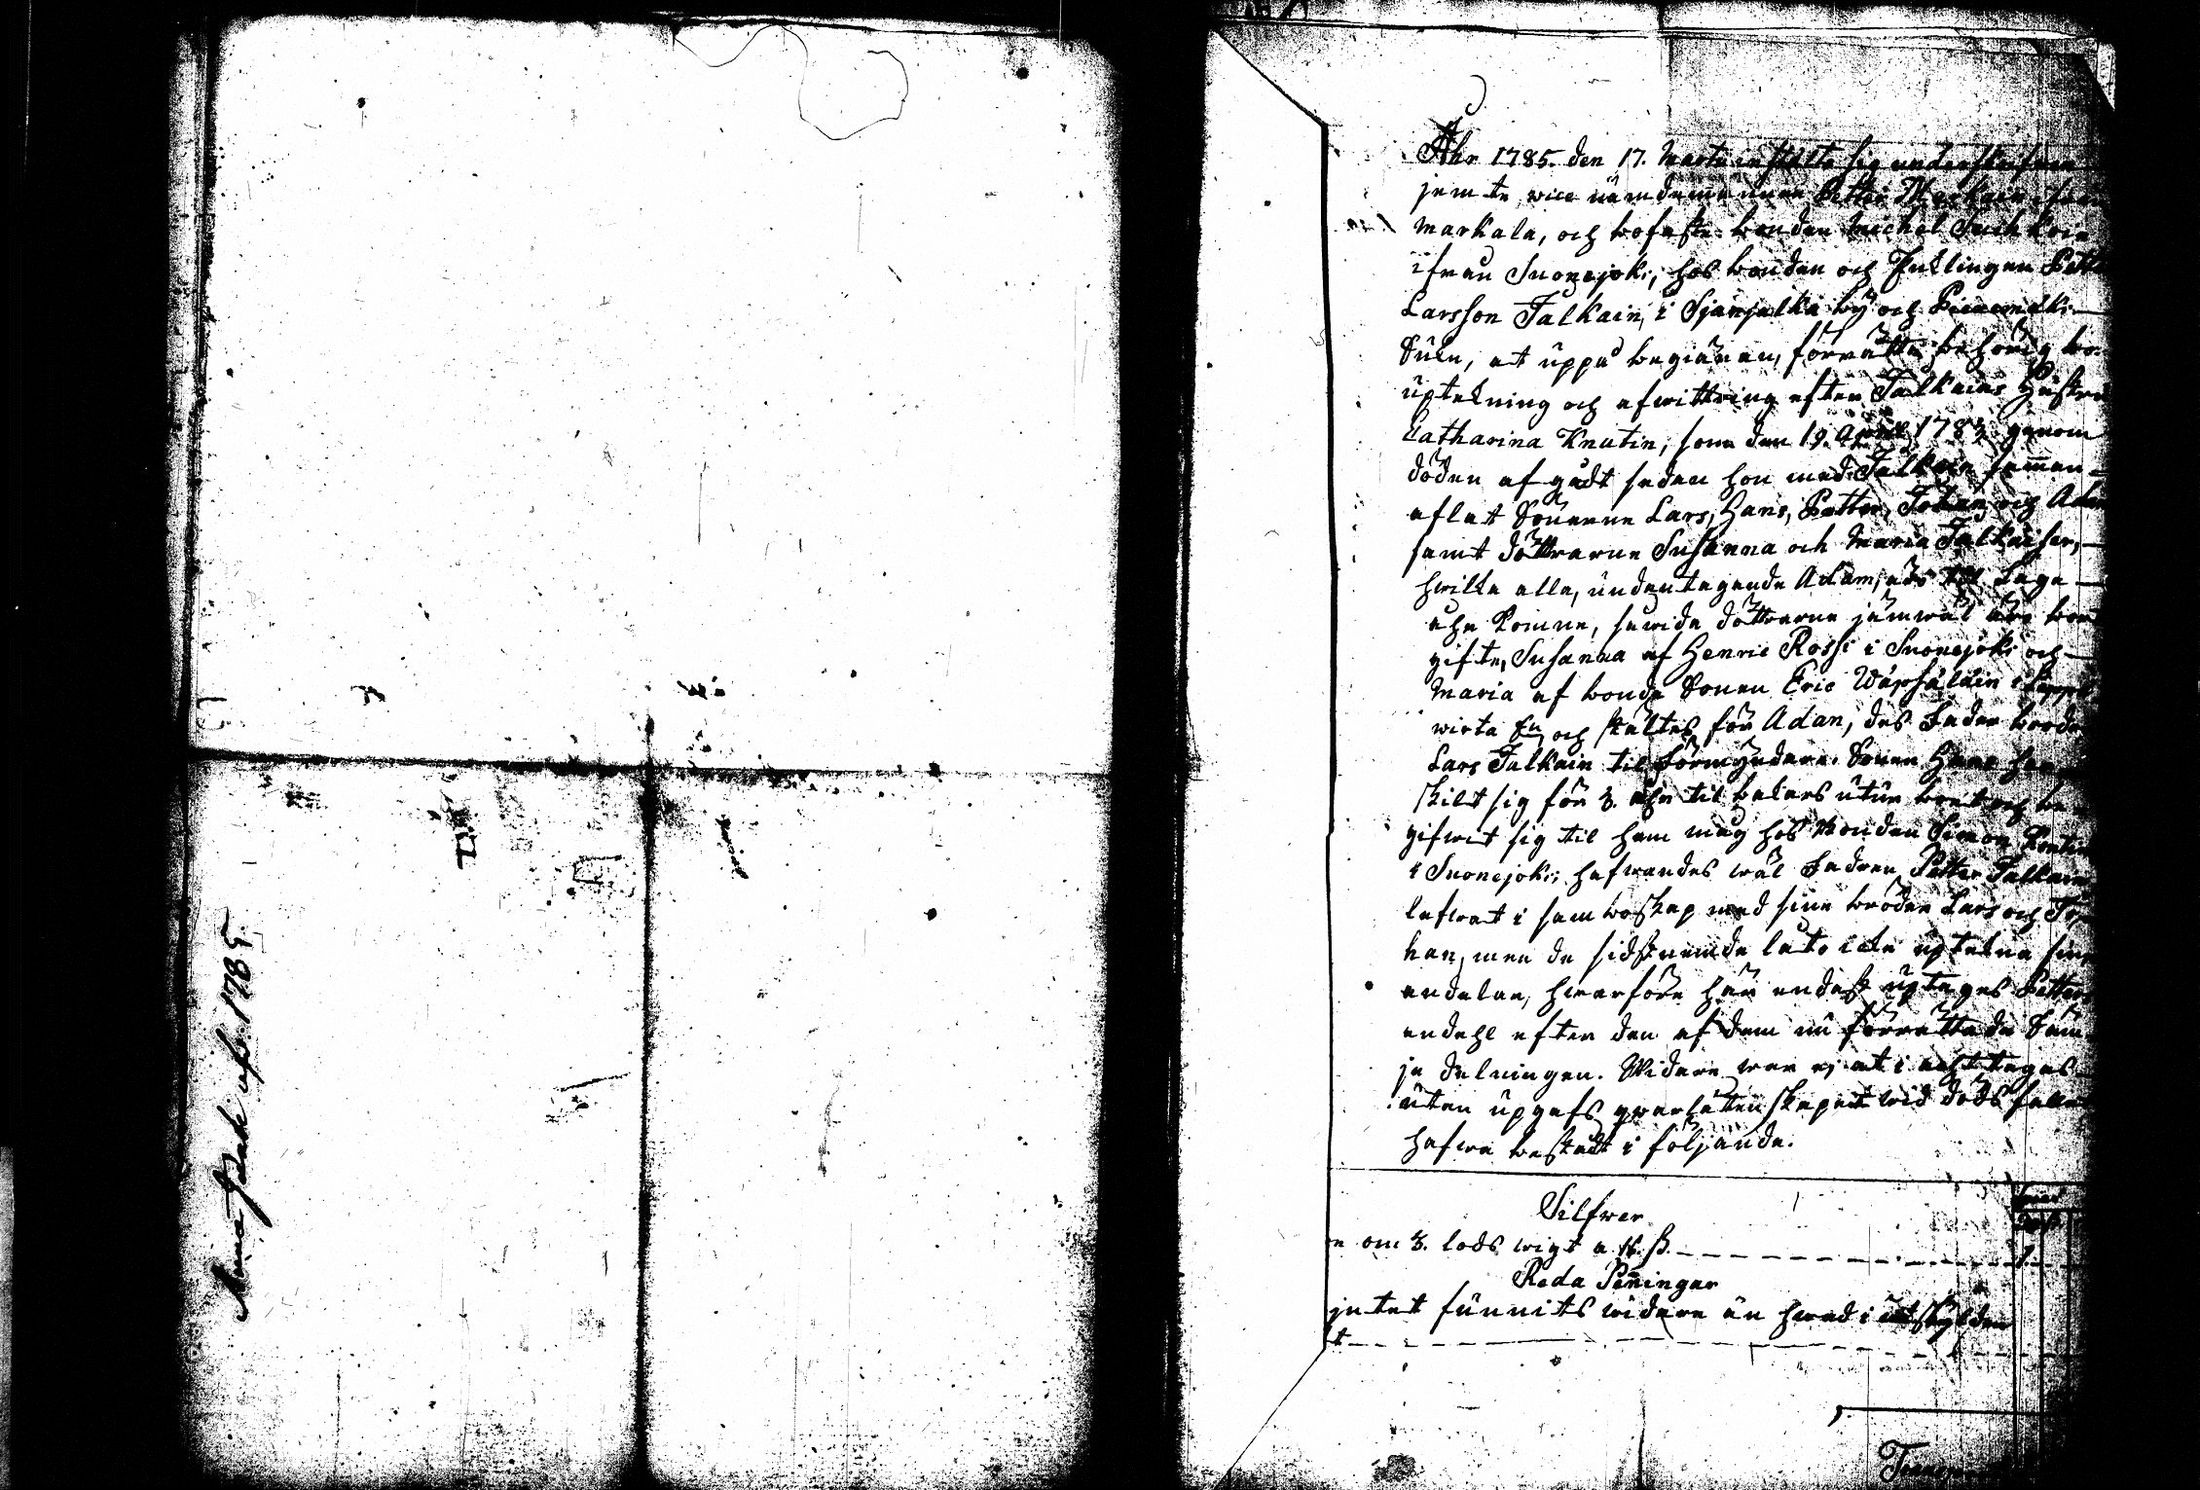 Åhr 1785. den 17. Martii instälte sig underskrifven
jemte, vice nämdemannen Petter Markain ifrån
Markala, och bofaste bonden Michel Suihkoin
ifrån Suonejoki, hos bonden och Enklingen Petter
Larsson Jalkain, i Sjänjälkä by och Piexemäki
Sokn, at uppå begiäran, förrätta behörig bo-
uptekning och afwittring efter Jalkains Hustru
Catharina Knutin, som den 19. April 1783 genom
döden afgådt sedan hon med Jalkain samman-
aflat Sönerne Lars, Hans, Petter, Johan och Adam
samt döttrarne Susanna och Maria Jalkaiser,
hwilka alla, undantagande Adam, äro til Laga
åhr komne, sawida döttrarne jämwäl äro bort
gifte, Susanna af Henric Rossi i Suonejoki och
Maria af bonde Sonen Eric Wäpsäläin i Leppä
wirta Sn och stältes för Adam, des Fader broder
Lars Jalkain til Förmyndare. Sonen Hans har
skilt sig för 3. åhr til bakars utur boet och be
gifwit sig til hem måg hos bonden Simon
i Suonejoki; hafwandes wäl Fadren Petter Jalkain
lefwat i sam boskap med sine bröder Lars och Jo
han, men de sidstnemde låta icke uptekna sine
andelar, hwarföre här endast uptages Petters
andehl efter den af dem nu förrättade Säm
je delningen. Widare war ej at i acht tagas
utan upgafs qwarlåtenskapen wid dödsfallet
hafwa bestådt i följande.
Silfwer
om 3. lods wigt a 16. ß.
1.
Reda Peñingar
intet funnits widare än hwad i utskylder
t
1785